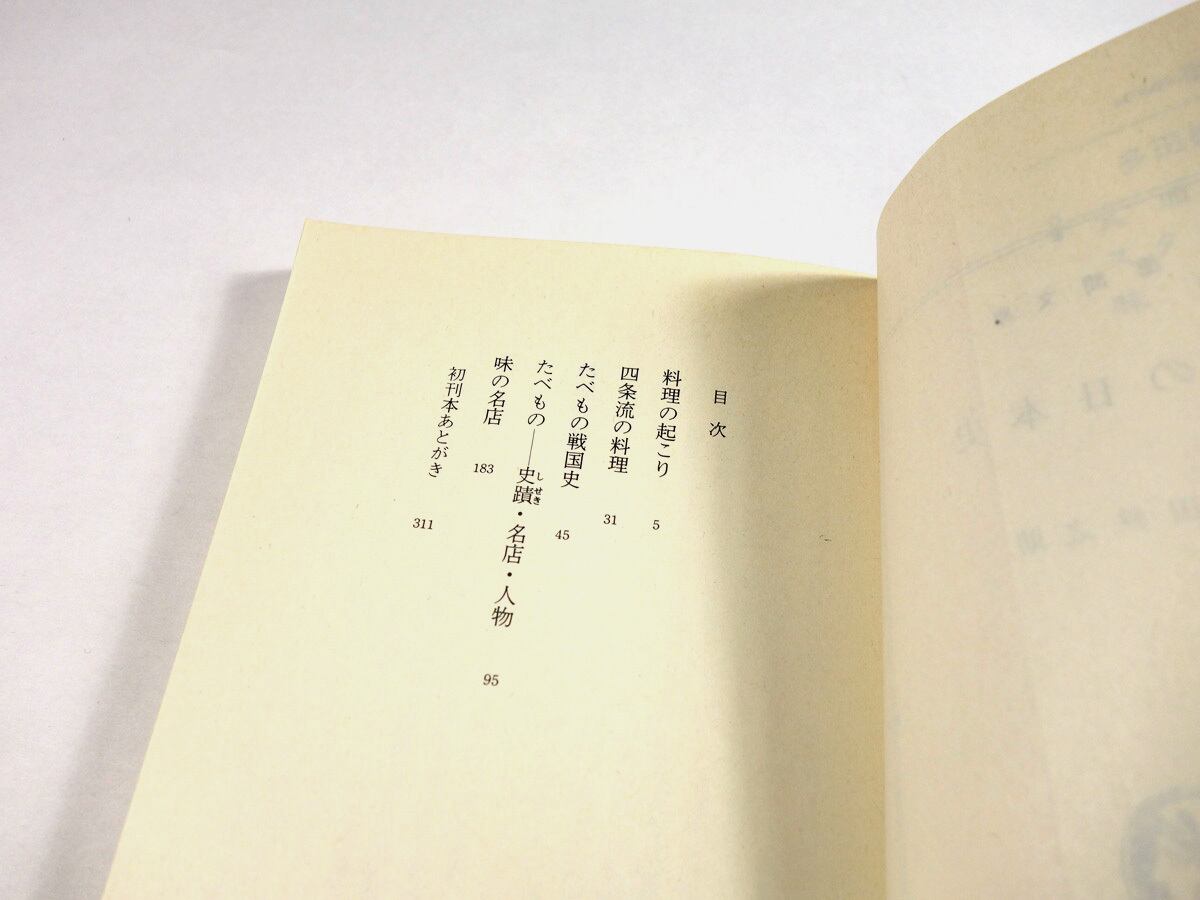 目次
料理の起こり 5
四条流の料理 31
たべもの戦国史 45
たべもの——史蹟・名店・人物 95
しせき
味の名店 183
初刊本あとがき 311